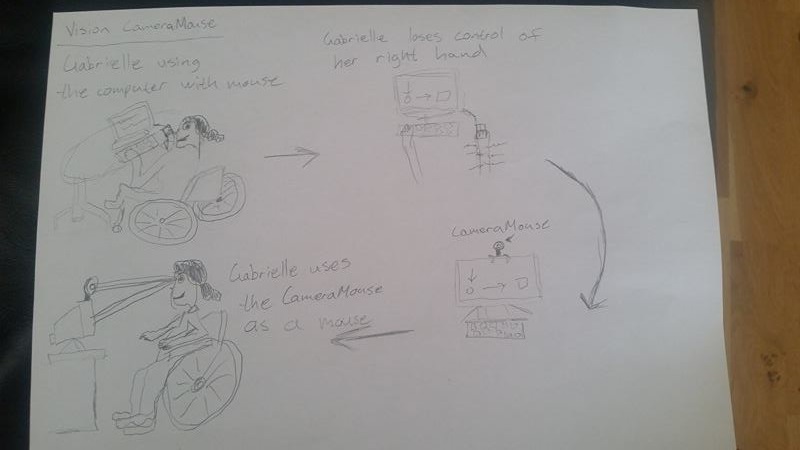 Vision CameraMouse
Gabrielle using
the computer with mouse
Gabrielle loses control of
her right hand
CameraMouse
Gabrielle uses
the CameraMouse
as a mouse